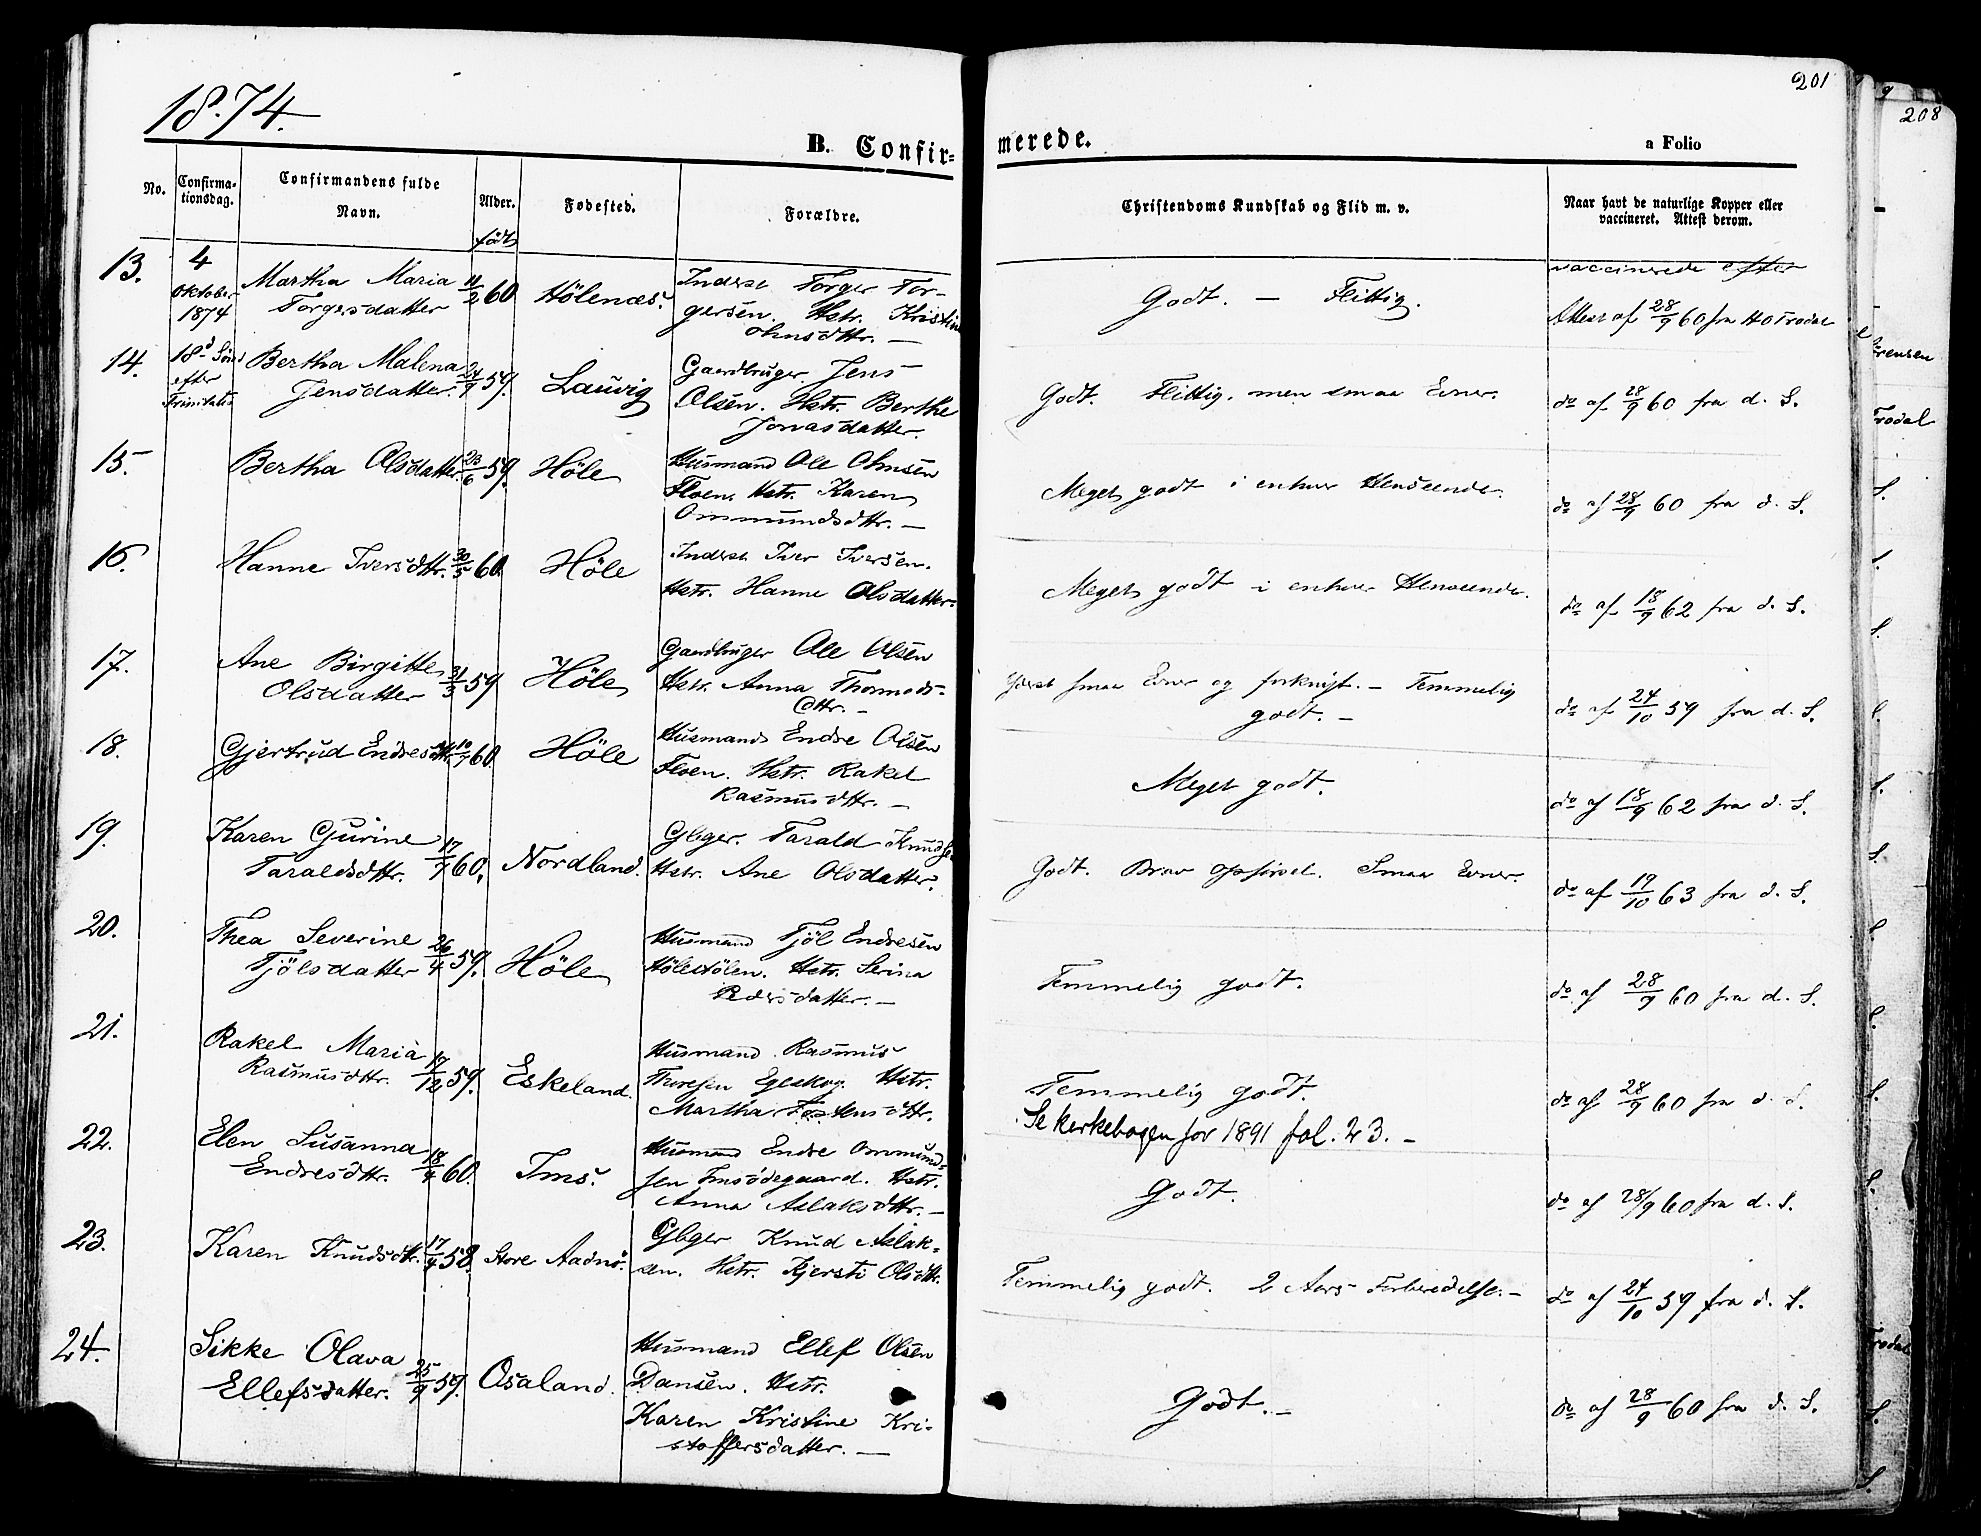 201
208
1874.
B. Confir-
merede.
a Folio
No.
Confirma-
tionsdag.
Confirmandens fulde
Navn.
Alder.
født
Fødested.
Forældre.
Christendoms Kundskab og Flid m. v.
Naar havt de naturlige Kopper eller
vaccineret. Attest derom.
13.
4
Oktober
1874
Martha Maria
Torgersdatter
11/2 60
Hölenæs.
Inderst Torger Tor-
gersen. Hstr. Kristine
Ohmsdttr. —
Godt. — Flittig.
vaccinerede efter
Attest af 28/9 60 fra HO Trodal
14.
18d Sönd
efter
Trinitatis
Bertha Malena
Jensdatter.
24/9 59.
Lauvig
Gaardbruger Jens
Olsen. Hstr. Berthe
Jonasdatter.
Godt. Flittig, men smaa Evner.
do af 28/9 60 fra d. S.
15.
Bertha Olsdatter.
23/6 59.
Höle
Husmand Ole Ohmsen
Floen. Hstr. Karen
Ommundsdttr. —
Meget godt i enhver Henseende.
do af 28/9 60 fra d. S.
16.
Hanne Iversdttr.
30/5 60.
Höle
Inderst Iver Iversen.
Hstr. Hanne Olsdatter.
Meget godt i enhver Henseende.
do af 18/9 62 fra d. S.
17.
Ane Birgitte
Olsdatter
31/3 59
Höle
Gaardbruger Ole Olsen
Hstr. Anna Thormods-
dttr. —
Yderst smaa Evner og forknyt. — Temmelig
godt. —
do af 24/10 59 fra d. S.
18.
Gjertrud Endresdttr.
10/7 60
Höle
Husmand Endre Olsen
Floen. Hstr. Rakel
Rasmusdttr. —
Meget godt.
do af 18/9 62 fra d. S.
19.
Karen Gurine
Taraldsdttr.
17/7 60.
Nordland.
Gbger. Tarald Knudsen
Hstr. Ane Olsdatter.
Godt. Brav Opförsel. Smaa Evner.
do af 19/10 63 fra d. S.
20.
Thea Severine
Tjölsdatter
26/4 59.
Höle
Husmand Tjöl Endresen
Hölestölen. Hstr. Serina
Pedersdatter. —
Temmelig godt.
do af 28/9 60 fra d. S.
21.
Rakel Maria
Rasmusdttr.
17/12 59.
Eskeland.
Husmand Rasmus
Thoresen Egeskog. Hstr.
Martha Tostensdttr.
Temmelig godt.
Se Kerkebogen for 1891 fol. 23. —
do af 28/9 60 fra d. S.
22.
Elen Susanna
Endresdttr.
18/4 60.
Ims.
Husmand Endre Ommund-
sen Imsödegaard. Hstr.
Anna Aslaksdttr. —
Godt.
do af 28/9 60 fra d. S.
23.
Karen Knudsdttr.
17/4 58.
Store Aadnö.
Gbger Knud Aslak-
sen. Hstr. Kjersti Olsdttr.
Temmelig godt. 2 Aars Forberedelse. —
do af 24/10 59 fra d. S.
24.
Sikke Olava
Ellefsdatter.
25/9 59.
Osaland.
Husmand Ellef Olsen
Dansen. Hstr.
Karen Kristine Kri-
stoffersdatter. —
Godt. —
do af 28/9 60 fra d. S.